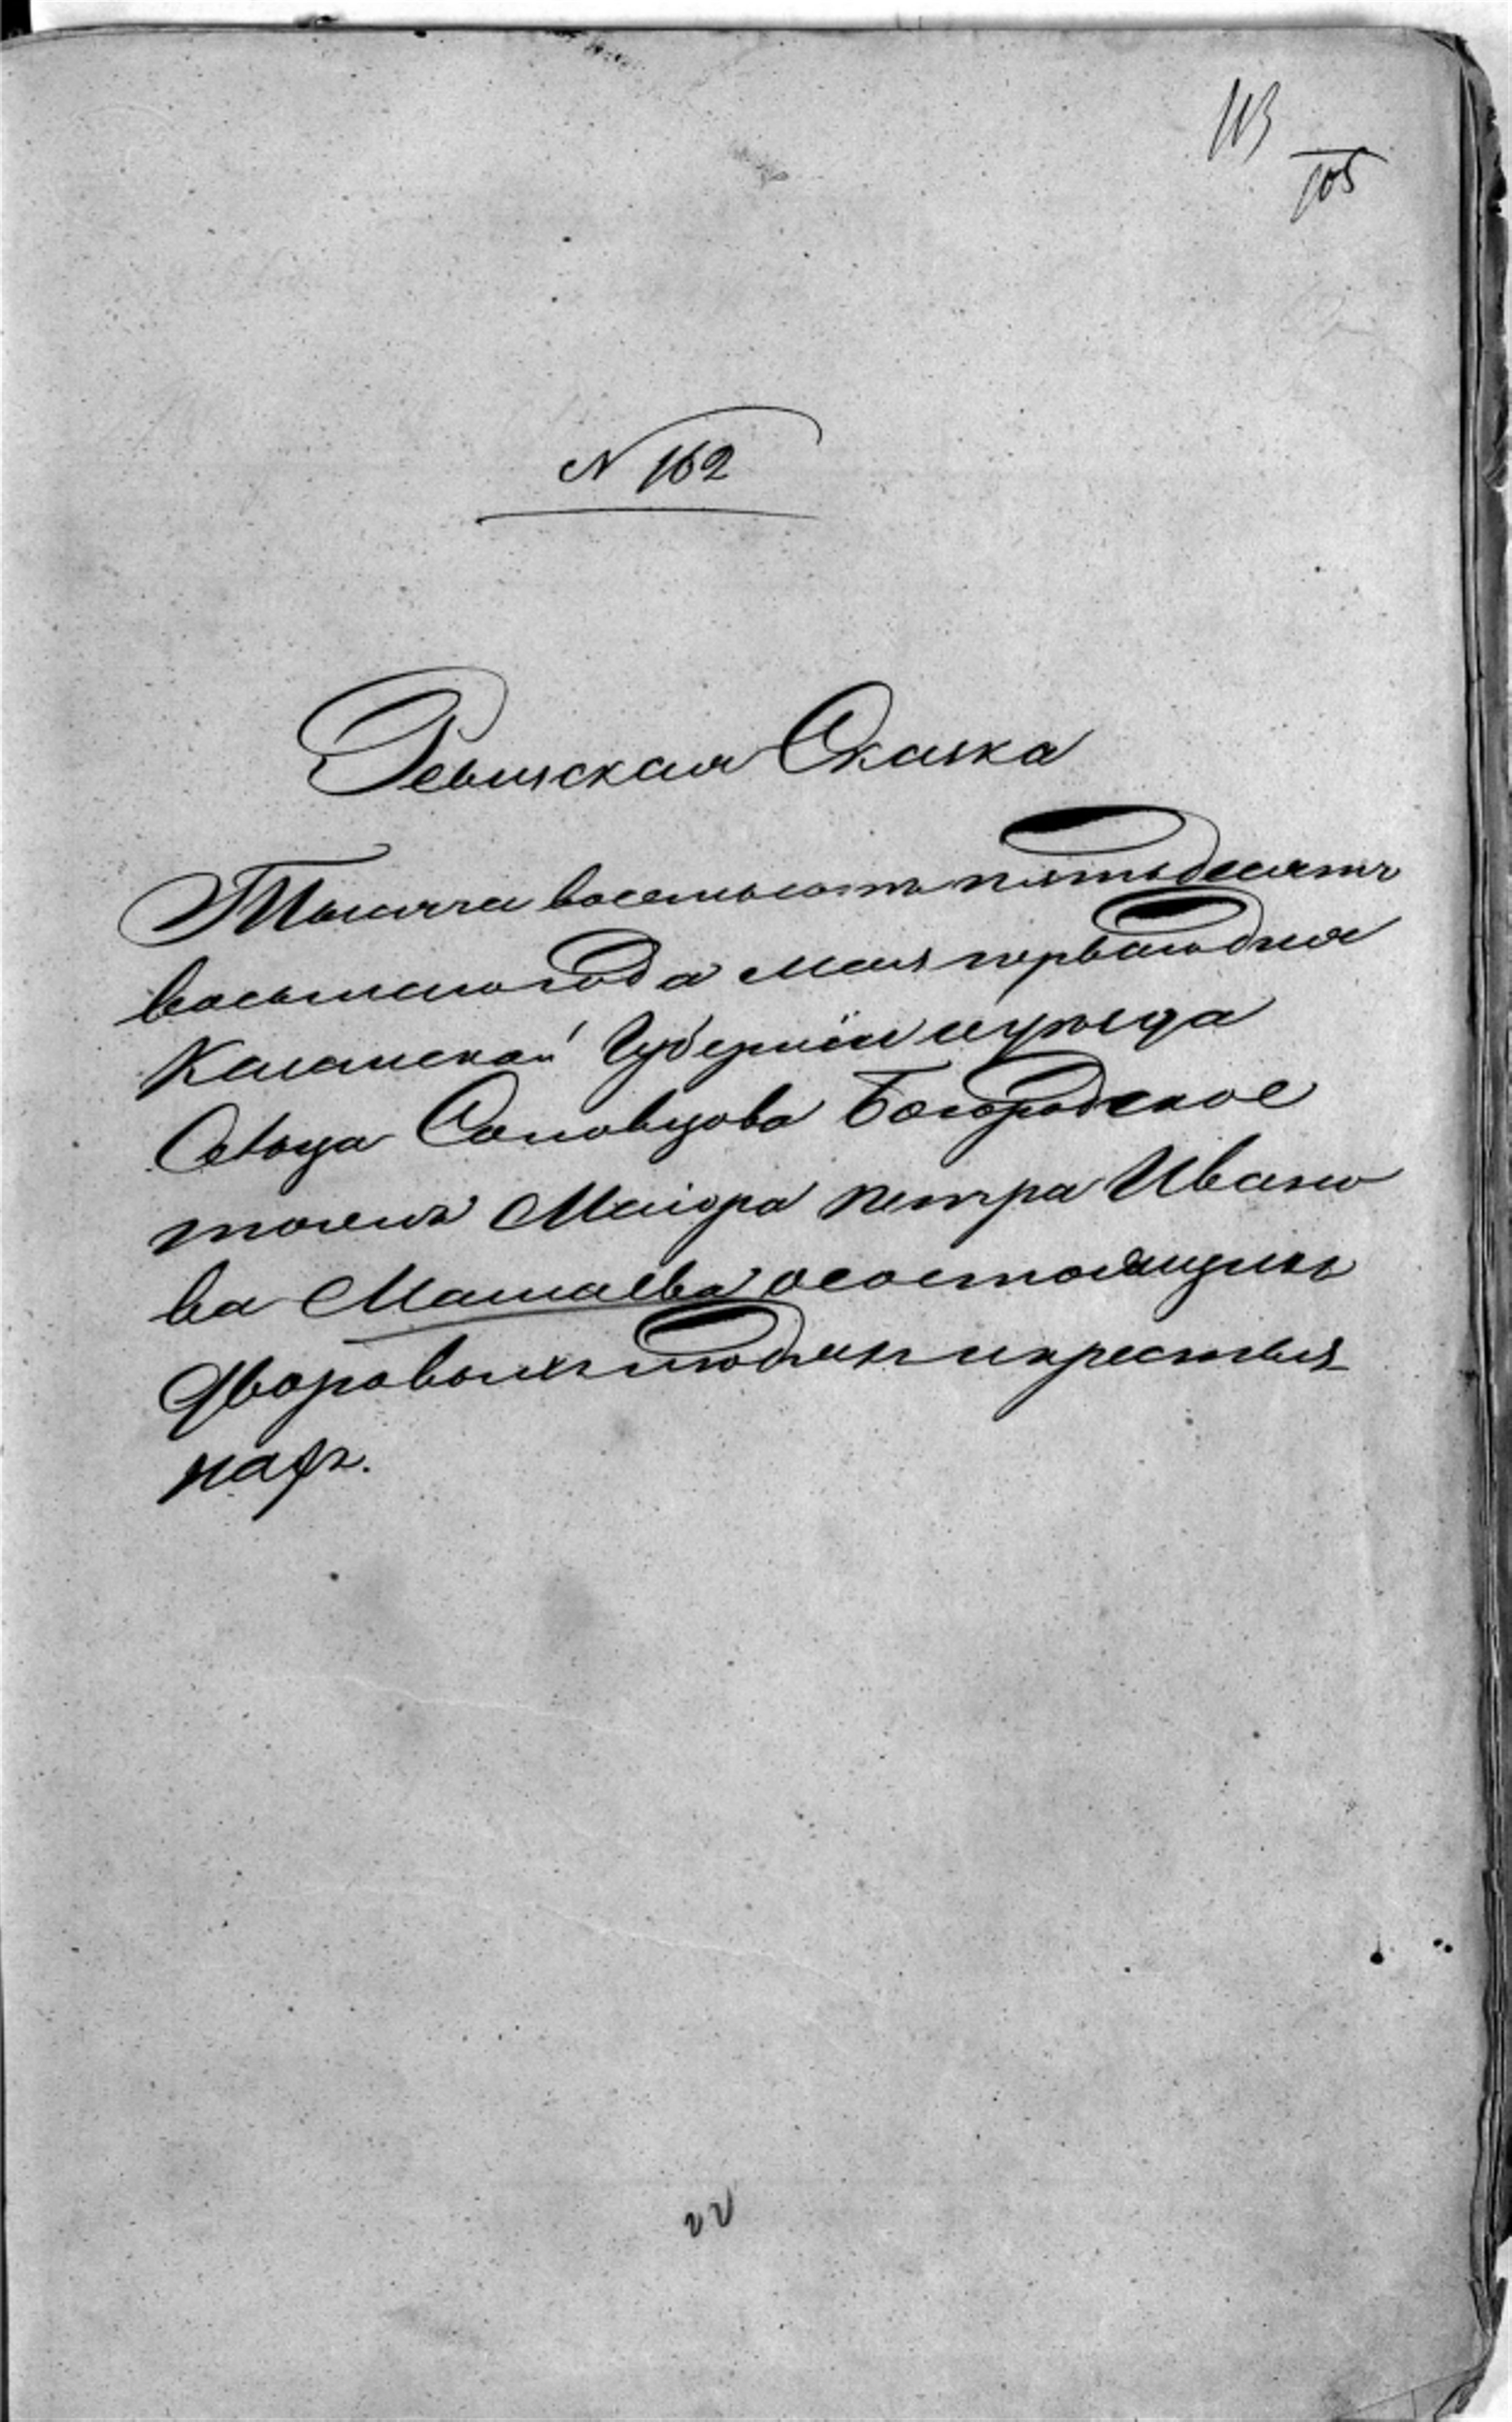 113
105
N 162
Ревизская Сказка
Тысяча восемьсотъ пятьдесятъ
восьмаго года мая перваго дня
Казанской Губернiи иуѣзда
Сельца Соловцова Богородское
тожъ Маiора Петра Ивано
ва Мамаева осостоящихъ
дворовыхъ людяхъ икрестья
нахъ.